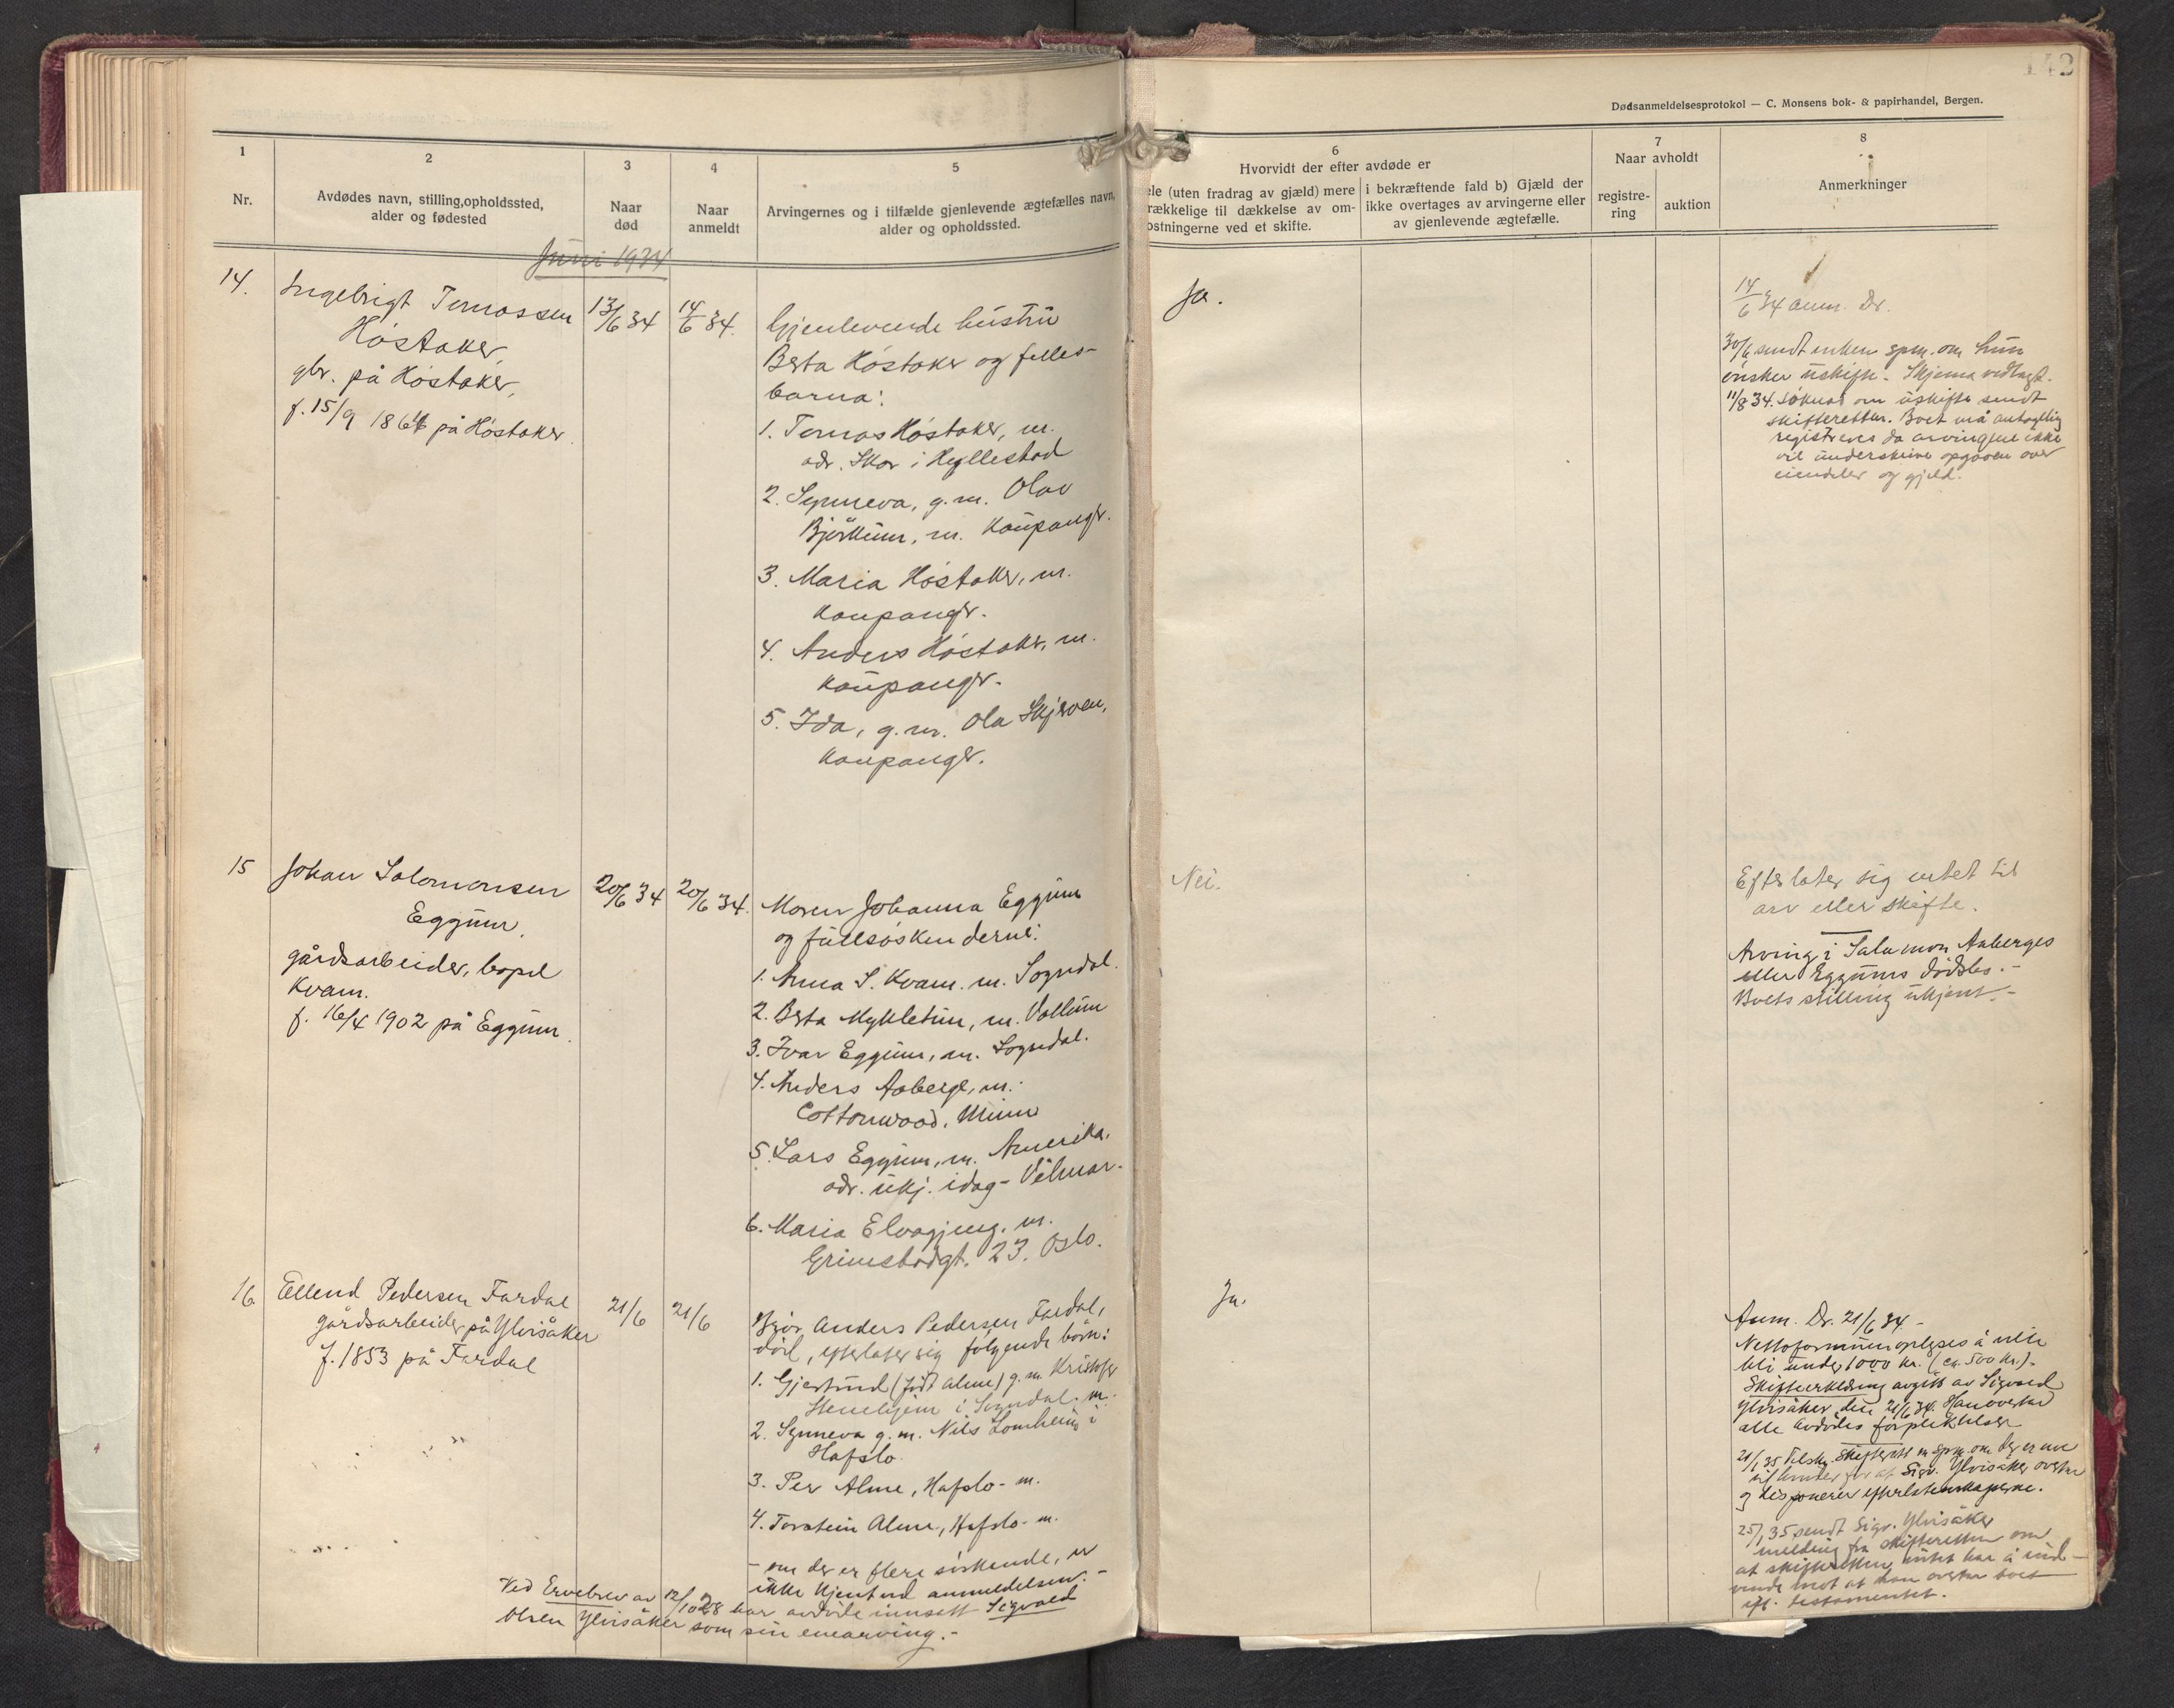 142
Dødsanmeldelsesprotokol — C. Monsens bok- & papirhandel, Bergen.
1
Nr.
2
Avdødes navn, stilling, opholdssted,
alder og fødested
3
Naar
død
4
Naar
anmeldt
5
Arvingernes og i tilfælde gjenlevende ægtefælles navn,
alder og opholdssted.
6
Hvorvidt der efter avdøde er
ele (uten fradrag av gjæld) mere
rækkelige til dækkelse av om-
ostningerne ved et skifte.
i bekræftende fald b) Gjæld der
ikke overtages av arvingerne eller
av gjenlevende ægtefælle.
7
Naar avholdt
registre-
ring
auktion
8
Anmerkninger
Juni 1934
14.
Ingebrigt Tomassen
Høstaker,
gbr. på Høstaker,
f. 15/9 1864 på Høstaker.
13/6 34
14/6 34.
Gjenlevende hustru
Berta Høstaker og felles-
barna:
1. Tomas Høstaker, m.
adr. Skor i Hyllestad
2. Synneva, g.m. Olav
Bjørkum, m. Kaupanger.
3. Maria Høstaker, m.
Kaupanger.
4. Anders Høstaker, m.
Kaupanger.
5. Ida, g.m. Ola Skjerven,
Kaupanger.
Ja.
14/6 34 anm. Dr.
30/6 sendt enken spm. om hun
ønsker uskifte. Skjema vedlagt.
11/8 34. Søknad om uskifte sendt
skifteretten. Boet må antagelig
registreres da arvingene ikke
vil underskrive opgaven over
eiendeler og gjeld.
15
Johan Salomonsen
Eggum.
gårdsarbeider, bopel
Kvam.
f. 16/4 1902 på Eggum.
20/6 34
20/6 34.
Moren Johanna Eggum
og fullsøskenderne:
1. Anna S. Kvam. m. Sogndal.
2. Berta Mykletun, m. Vallum
3. Ivar Eggum, m. Sogndal.
4. Anders Aaberge, m.
Cottonwood, Minn
5. Lars Eggum, m. Amerika,
adr. ukj. idag - Vilmar.
6. Maria Elvagjeng, m.
Grimstadgt. 23. Oslo.
Nei.
Efterlater sig intet til
arv eller skifte.
Arving i Salamon Aaberges
eller Eggums dødsbo. -
Boets stilling ukjent. -
16
Ellend Pedersen Fardal
gårdsarbeider på Ylvisåker
f. 1853 på Fardal
21/6
21/6
Bror Anders Pedersen Fardal,
død, efterlater sig følgende børn:
1. Gjertrud (født Alme) g.m. Kristofer
i Sogndal. m.
2. Synneva g.m. Nils Lomheim i
Hafslo.
3. Per Alme, Hafslo - m.
4. Torstein Alme, Hafslo - m.
- om der er flere søskende, er
ikke kjent ved anmeldelsen. -
Ved Ervebrev av 12/10 28 har avdøde innsatt Sigvald
Olsen Ylvisåker som sin enearving. -
Ja.
Anm. Dr. 21/6 34 -
Nettoformuen oplyses å ville
bli under 1000 kr. (ca. 500 kr.).
Skifteerklæring avgitt av Sigvald
Ylvisåker den 21/6 34. Han overtar
alle avdødes forpliktelser.
21/1 35 Tilskr. Skifterett m. spm. om der er noe
til hinder for at Sigv. Ylvisåker overtar
og disponerer efterlatenskapene.
25/1 35 sendt Sigv. Ylvisåker
melding fra skifteretten om
at skifteretten intet har å inn-
vende mot at han overtar boet
ifl. testamentet.